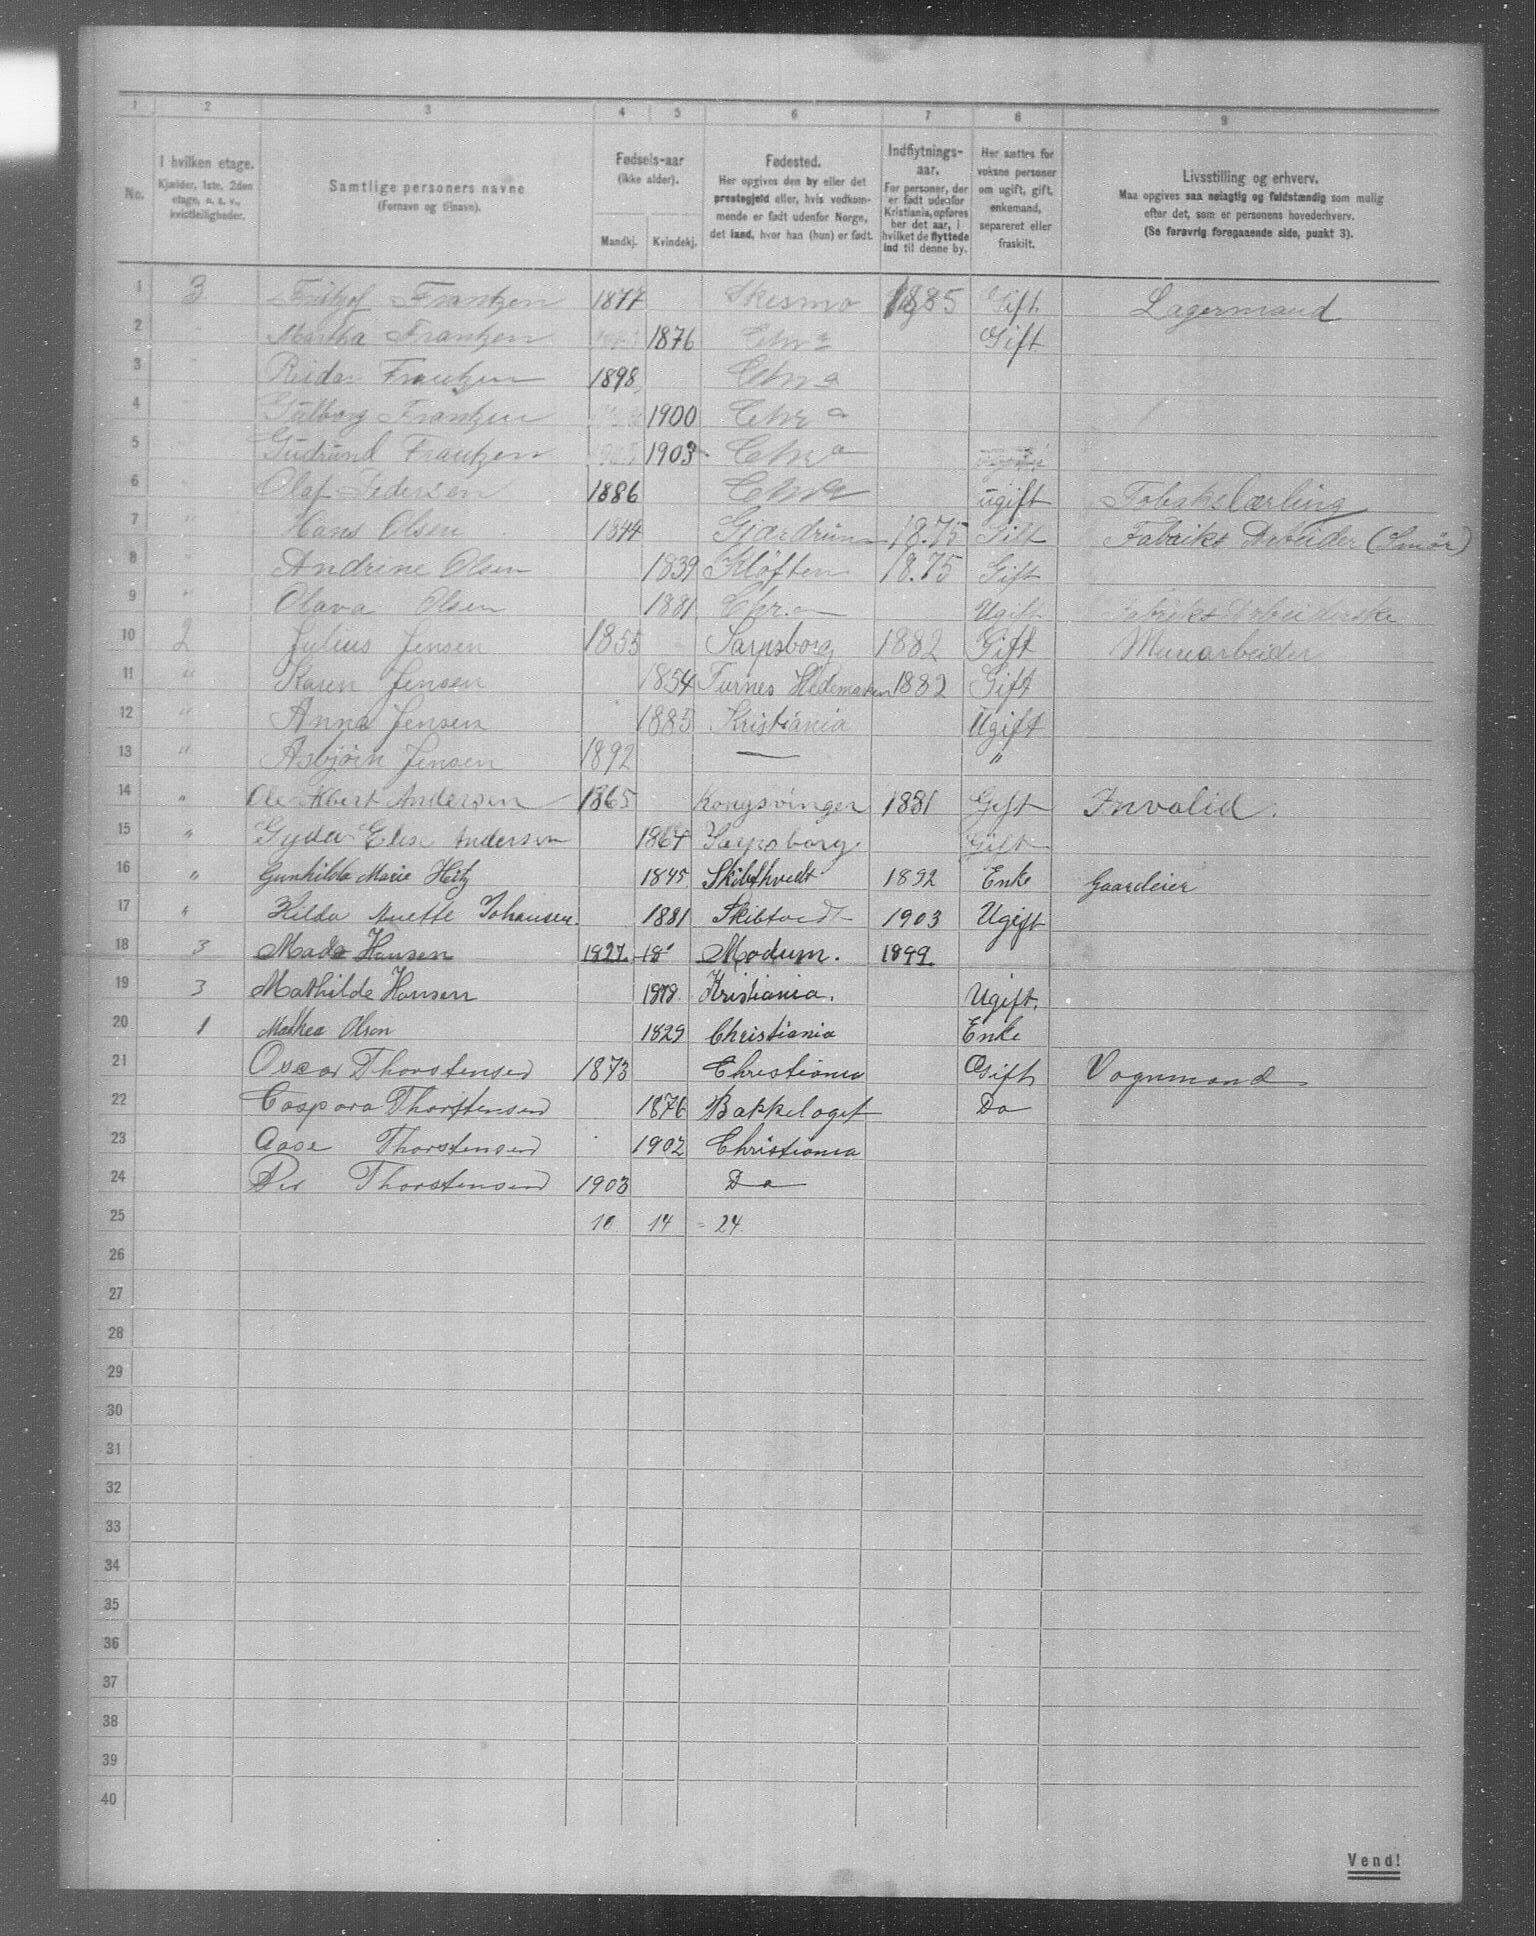 1 2 3 4 5 6 7 8 9
No. I hvilken etage. Kjælder, 1ste, 2den etage, o. s. v., kvistleiligheder. Samtlige personers navne (Fornavn og tilnavn). Fødsels-aar (ikke alder). Mandkj. Kvindekj. Fødested. Her opgives den by eller det prestegjeld eller, hvis vedkommende er født udenfor Norge, det land, hvor han (hun) er født. Indflytnings-aar. For personer, der er født udenfor Kristiania, opføres her det aar, i hvilket de flyttede ind til denne by. Her sættes for voksne personer om ugift, gift, enkemand, separeret eller fraskilt. Livsstilling og erhverv. Maa opgives saa nøiagtig og fuldstændig som mulig efter det, som er personens hovederhverv. (Se forøvrig foregaaende side, punkt 3).
1 3 Fritjof Frantzen 1877 Skesmo 1885 Gift Lagermand
2 " Martha Frantzen 1876 Chr a Gift
3 " Reidar Frantzen 1898 Chr a
4 " Gulborg Frantzen 1900 Chr a
5 " Gudrund Frantzen 1903 Chr a
6 " Olaf Pedersen 1886 Chr a ugift Tobakslærling
7 " Hans Olsen 1844 Gjærdrum 18.75 Gift Fabriks Arbeider (Smør)
8 " Andrine Olsen 1839 Kløften 18.75 Gift
9 " Olava Olsen 1881 Chr.a Ugift Fabriks Arbeiderske
10 2 Julius Jensen 1855 Sarpsborg 1882 Gift Murarbeider
11 " Karen Jensen 1854 Furnes Hedemarken 1882 Gift
12 " Anna Jensen 1885 Kristiania Ugift
13 " Asbjørn Jensen 1892 — "
14 " Ole Albert Andersen 1865 Kongsvinger 1881 Gift Invalid.
15 " Gyda Elise Andersen 1864 Sarpsborg Gift
16 " Gunhilda Marie Heitz 1845 Skibthvedt 1892 Enke Gaardeier
17 " Hilda Anette Johansen. 1881 Skibtvedt 1903 Ugift
18 3 Mads Hansen 1827. 18 Modum. 1899.
19 3 Mathilde Hansen 1878. Kristiania. Ugift.
20 1 Mathea Olson 1829 Christiania Enke
21 Oscar Thorstensen 1873 Christiania Gift Vognmand
22 Caspara Thorstensen 1876 Bækkelaget Do
23 Aase Thorstensen 1902 Christiania
24 Per Thorstensen 1903 Do
25 10 14 = 24
26
27
28
29
30
31
32
33
34
35
36
37
38
39
40
Vend!